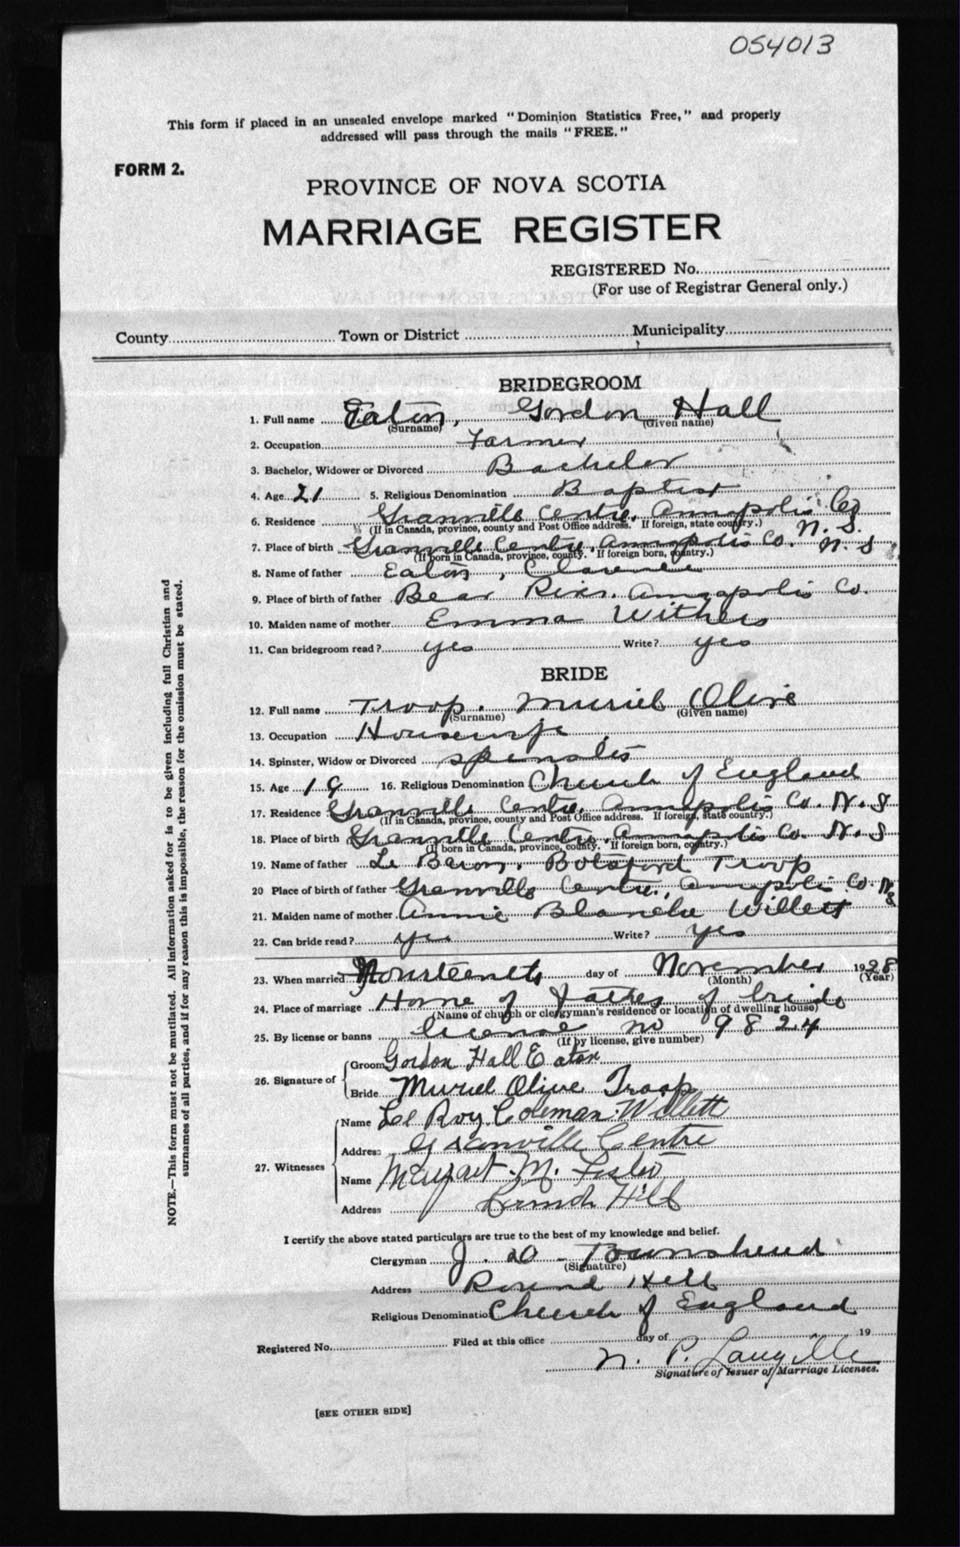 054013
This form if placed in an unsealed envelope marked "Dominion Statistics Free," and properly
addressed will pass through the mails "FREE."
FORM 2.
PROVINCE OF NOVA SCOTIA
MARRIAGE REGISTER
REGISTERED No.
(For use of Registrar General only.)
County Town or District Municipality
BRIDEGROOM
1. Full name Eaton, Gordon Hall
(Surname) (Given name)
2. Occupation Farmer
3. Bachelor, Widower or Divorced Bachelor
4. Age 21 5. Religious Denomination Baptist
6. Residence Granville Centre, Annapolis Co N.S.
(If in Canada, province, county and Post Office address. If foreign, state country.)
7. Place of birth Granville Centre, Annapolis Co. N.S
(If born in Canada, province, county. If foreign born, country.)
8. Name of father Eaton, Clarence
9. Place of birth of father Bear River, Annapolis Co.
10. Maiden name of mother Emma Withers
11. Can bridegroom read? yes Write? yes
BRIDE
12. Full name Troop, Muriel Olive
(Surname) (Given name)
13. Occupation Housewife
14. Spinster, Widow or Divorced spinster
15. Age 19 16. Religious Denomination Church of England
17. Residence Granville Centre, Annapolis Co. N.S
(If in Canada, province, county and Post Office address. If foreign, state country.)
18. Place of birth Granville Centre, Annapolis Co N.S
(If born in Canada, province, county. If foreign born, country.)
19. Name of father Le Baron Botsford Troop
20 Place of birth of father Granville Centre, Annapolis Co. NS
21. Maiden name of mother Annie Blanche Willett
22. Can bride read? yes Write? yes
23. When married day of November 1928
(Month) (Year)
24. Place of marriage Home of father of bride
(Name of church or clergyman's residence or location of dwelling house)
25. By license or banns license no 9824
(If by license, give number)
26. Signature of Groom Gordon Hall Eaton
Bride Muriel Olive Troop
27. Witnesses Name Le Roy Coleman Willett
Address Granville Centre
Name Margaret M.
Address Hill
I certify the above stated particulars are true to the best of my knowledge and belief.
Clergyman J. Townshend
(Signature)
Address Round Hill
Religious Denomination Church of England
Registered No. Filed at this office day of 19
N. P. Langille
Signature of Issuer of Marriage Licenses.
[SEE OTHER SIDE]
NOTE.—This form must not be mutilated. All information asked for is to be given including full Christian and
surnames of all parties, and if for any reason this is impossible, the reason for the omission must be stated.